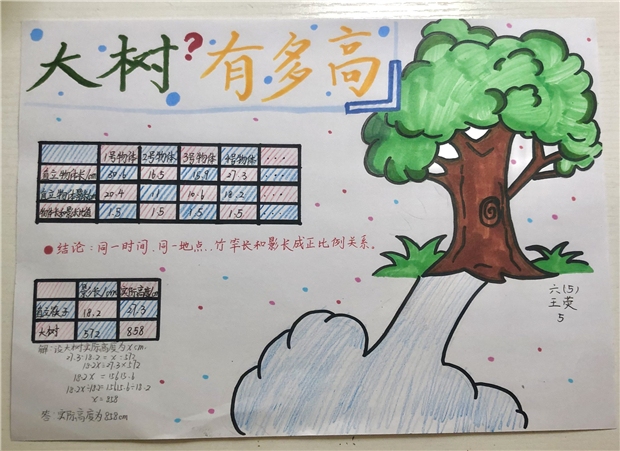 大树?有多高
1号物体 2号物体 3号物体 4号物体 ...
直立物体长/cm 30.6 16.5 15.9 27.3 ...
直立物体影长/cm 20.4 11 10.6 18.2 ...
物体长和影长比值 1.5 1.5 1.5 1.5 ...
结论:同一时间.同一地点..竹竿长和影长成正比例关系。
影长/cm 实际高度/cm
18.2 27.3
大树 572 858
解:设大树实际高度为xcm.
27.3:18.2=x:572
18.2x=27.3×572
18.2x=15615.6
18.2x÷18.2=15615.6÷18.2
x=858
答:实际高度为858cm
六(5)
王荧
5